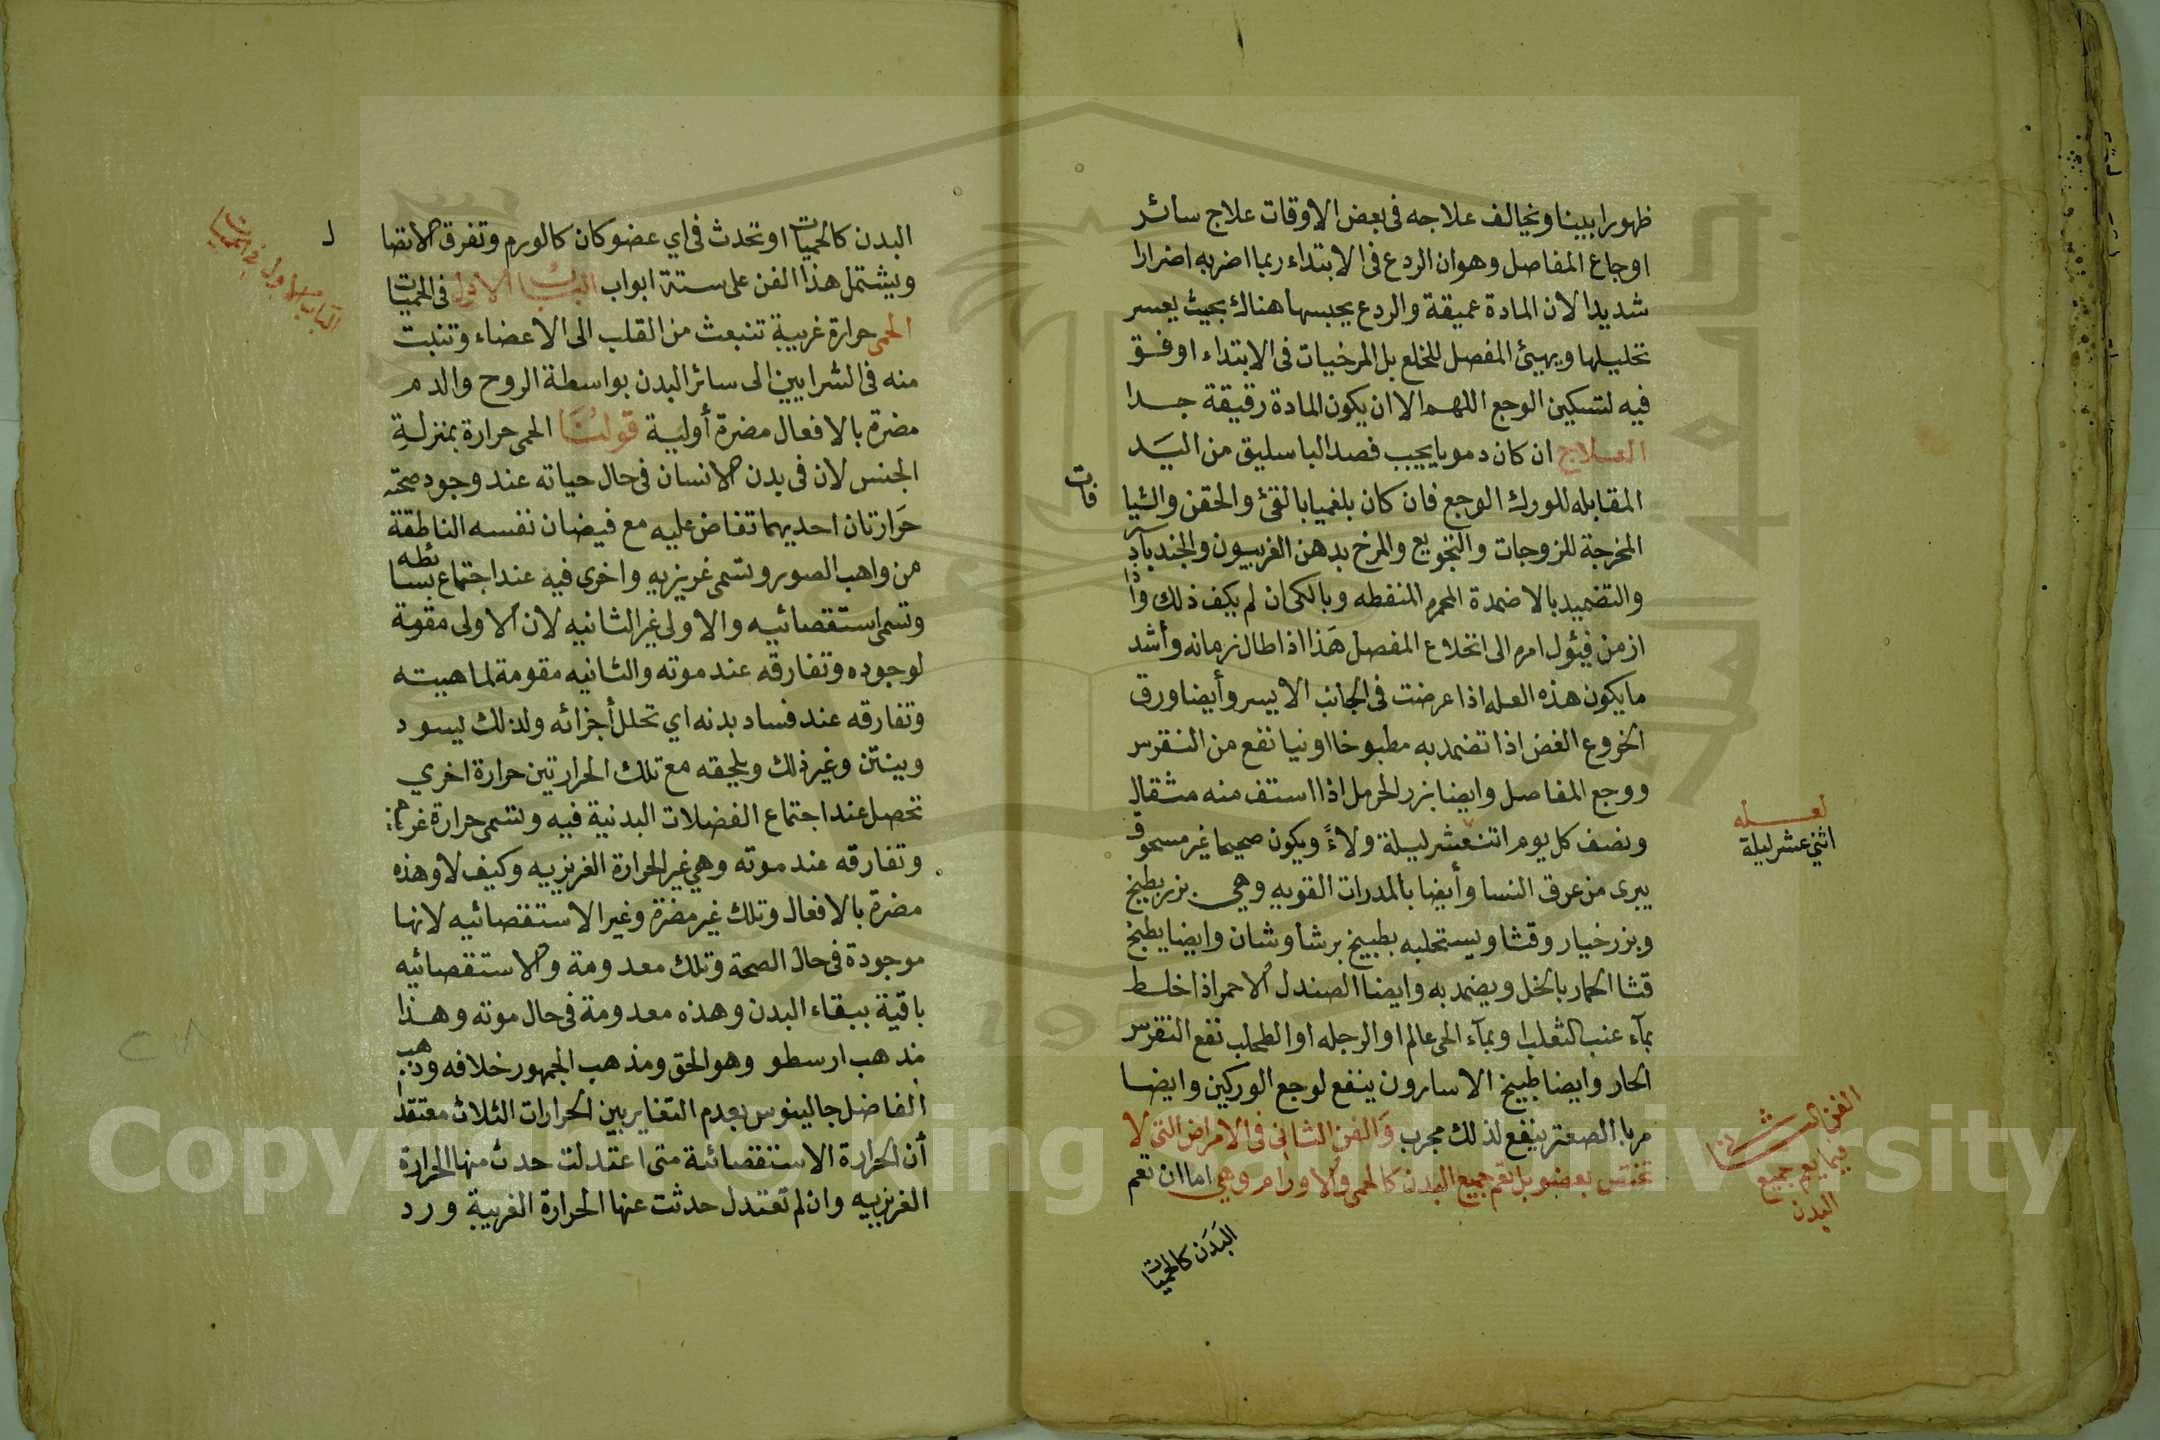 ظهورا بينا ويخالف علاجه فى بعض الاوقات علاج سائر
اوجاع المفاصل وهو ان الردع فى الابتداء ربما اضر به اضرارا
شديدا لان المادة عميقة والردع يحبسها هناك بحيث يعسر
تحليلها ويهيئ المفصل للخلع بل المرخيات فى الابتداء اوفق
فيه لتسكين الوجع اللهم الا ان يكون المادة رقيقة جدا
العلاج ان كان دمويا يجب فصد الباسليق من اليد
المقابله للورك الوجع فان كان بلغميا بالقئ والحقن والشيا
فات
المخرجة للزوجات والتجويع والمرخ بدهن الفربيون والجندبادستر
والتضميد بالاضمدة المحمره المنفطه وبالكى ان لم يكف ذلك واذا
ازمن فيئول امره الى انخلاع المفصل هذا اذا طال زمانه وأشد
ما يكون هذه العله اذا عرضت فى الجانب الايسر وأيضا ورق
الخروع الغض اذا تضمد به مطبوخا او نيا نفع من النقرس
ووجع المفاصل وايضا بزر الحرمل اذا استف منه مثقال
ونصف كل يوم اثنعشر ليلة ولاءً ويكون صحيحا غير مسحوق
لعله
اثني عشر ليلة
يبرى من عرق النسا وأيضا بالمدرات القويه وهي بزر بطيخ
وبزر خيار وقثا ويستحلبه بطبيخ برشاوشان وايضا يطبخ
قثا الحمار بالخل ويضمد به وايضا الصندل الاحمر اذا خلط
بمآء عنب الثعلب او بمآء الحى عالم او الرجله او الطحلب نفع النقرس
الحار وايضا طبيخ الاسارون ينفع لوجع الوركين وايضا
مربا الصعتر ينفع لذلك مجرب والفن الثانى فى الامراض التى لا
تختص بعضو بل تعم جميع البدن كالحمى والاورام وهي اما ان تعم
الفن الثانى
فيما يعم جميع
البدن
البدن كالحميات
البدن كالحميات او تحدث فى اي عضو كان كالورم وتفرق الاتصا
ل
ويشتمل هذا الفن على ستة ابواب الباب الاول فى الحميات
الباب الاول فى الحميات
الحمى حرارة غريبة تنبعث من القلب الى الاعضاء وتنبث
منه فى الشرايين الى سائر البدن بواسطة الروح والدم
مضرة بالافعال مضرة أولية قولنا الحمى حرارة بمنزلة
الجنس لان فى بدن الانسان فى حال حياته عند وجود صحته
حرارتان احديهما تفاض عليه مع فيضان نفسه الناطقة
من واهب الصور وتسمى غريزيه واخرى فيه عند اجتماع بسائطه
وتسمى استقصائيه والاولى غير الثانيه لان الاولى مقومة
لوجوده وتفارقه عند موته والثانيه مقومة لماهيته
وتفارقه عند فساد بدنه اي تحلل أجزائه ولذلك يسود
وينتن وغير ذلك ويلحقه مع تلك الحرارتين حرارة اخري
تحصل عند اجتماع الفضلات البدنية فيه وتسمى حرارة غريبة
وتفارقه عند موته وهي غير الحرارة الغريزيه وكيف لا وهذه
مضرة بالافعال وتلك غير مضرة وغير الاستقصائيه لانها
موجودة فى حال الصحة وتلك معدومة والاستقصائيه
باقية ببقاء البدن وهذه معدومة فى حال موته وهذا
مذهب ارسطو وهو الحق ومذهب الجمهور خلافه وذهب
الفاضل جالينوس بعدم التغاير بين الحرارات الثلاث معتقدا
أن الحرارة الاستقصائية متى اعتدلت حدث منها الحرارة
الغريزيه وان لم تعتدل حدثت عنها الحرارة الغريبة ورد
Copyright © King Saud University